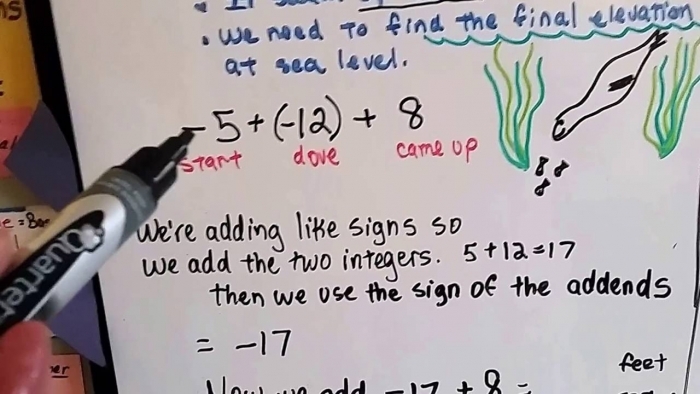 We need to find the final elevation
at sea level.
-5 + (-12) + 8
start dove came up
We're adding like signs so
we add the two integers. 5+12=17
then we use the sign of the addends
= -17
feet
Now we add -17 + 8 =
Quartet